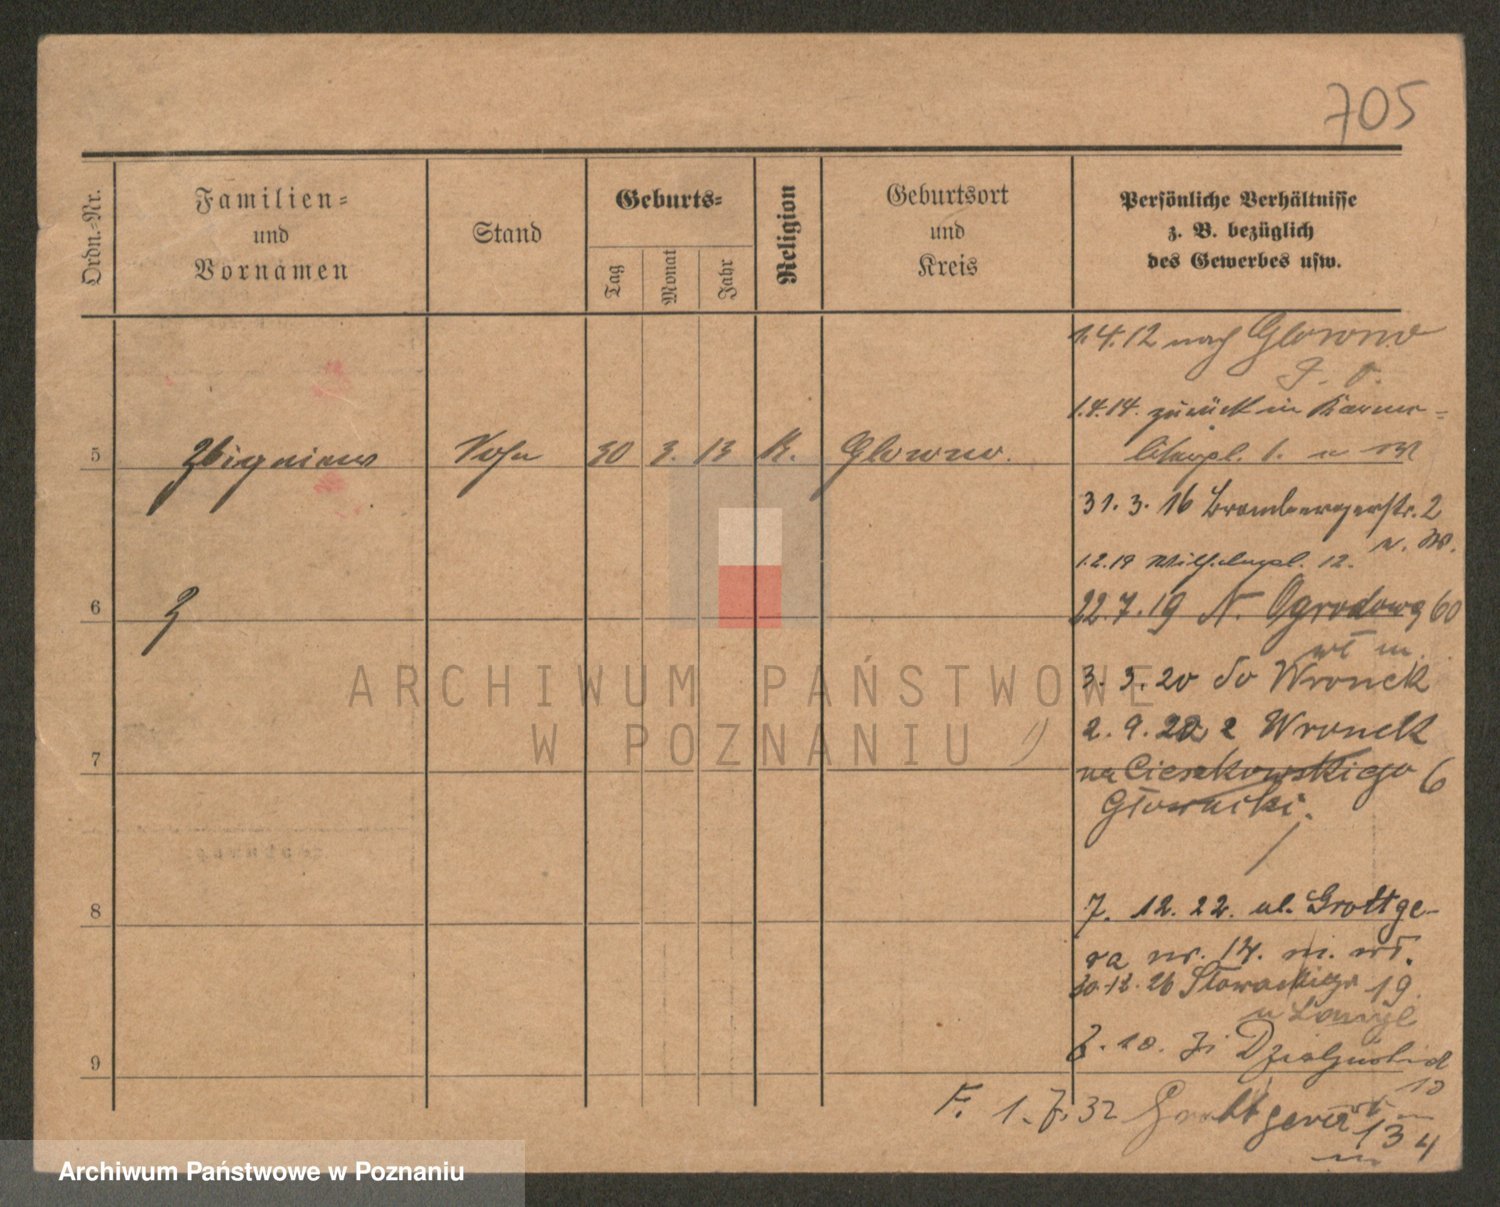 705
Ordn.-Nr.
Familien-
und
Vornamen
Stand
Geburts-
Tag
Monat
Jahr
Religion
Geburtsort
und
Kreis
Persönliche Verhältnisse
z. B. bezüglich
des Gewerbes usw.
1.4.12 nach Glowno
1.4.14. zurück in Karme-
literpl. 1.
5 Zbigniew Sohn 30 3. 13 K. Glowno.
31. 3. 16 Brombergerstr. 2
1.2.19 Wilhelmpl. 12.
6
22.7.19 N. Ogrodowa 60
3. 3. 20 do Wronek
2. 9. 22 z Wronek
7
na Cieszkowskiego 6
Głowacki.
8
7. 12. 22. ul. Grottge-
ra nr. 14. m. wł.
30.12.26 Słowackiego 19
9
10. 31 Działyńskich
10
F. 1. 7. 32 Grottgera 13
m 4
ARCHIWUM PAŃSTWOWE
W POZNANIU
Archiwum Państwowe w Poznaniu